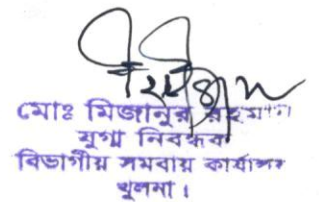 মোঃ মিজানুর রহমান
যুগ্ম নিবন্ধক
বিভাগীয় সমবায় কার্যালয়
খুলনা।